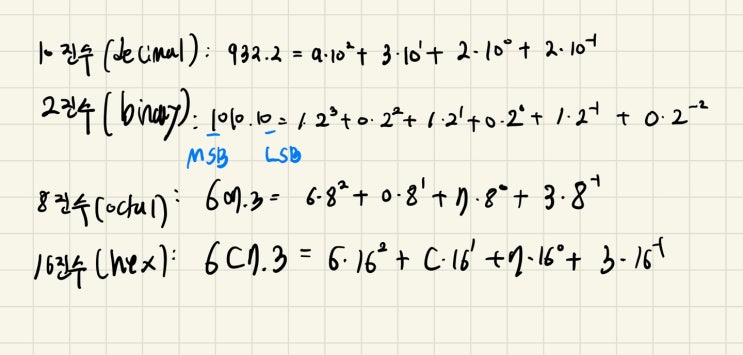 10진수(decimal): 932.2 = 9·10² + 3·10¹ + 2·10⁰ + 2·10⁻¹
2진수(binary): 1010.10 = 1·2³+0·2²+1·2¹+0·2⁰+1·2⁻¹ + 0·2⁻²
MSB LSB
8진수(octal): 607.3 = 6·8² + 0·8¹ + 7·8⁰ + 3·8⁻¹
16진수(hex): 6C7.3 = 6·16² + C·16¹ +7·16⁰ + 3·16⁻¹